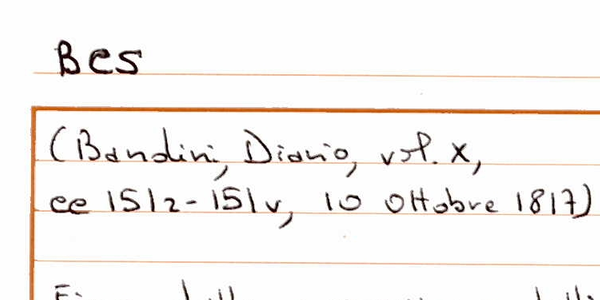 Bcs
(Bandini, Diario, vol. X,
cc 151r-151v, 10 Ottobre 1817)